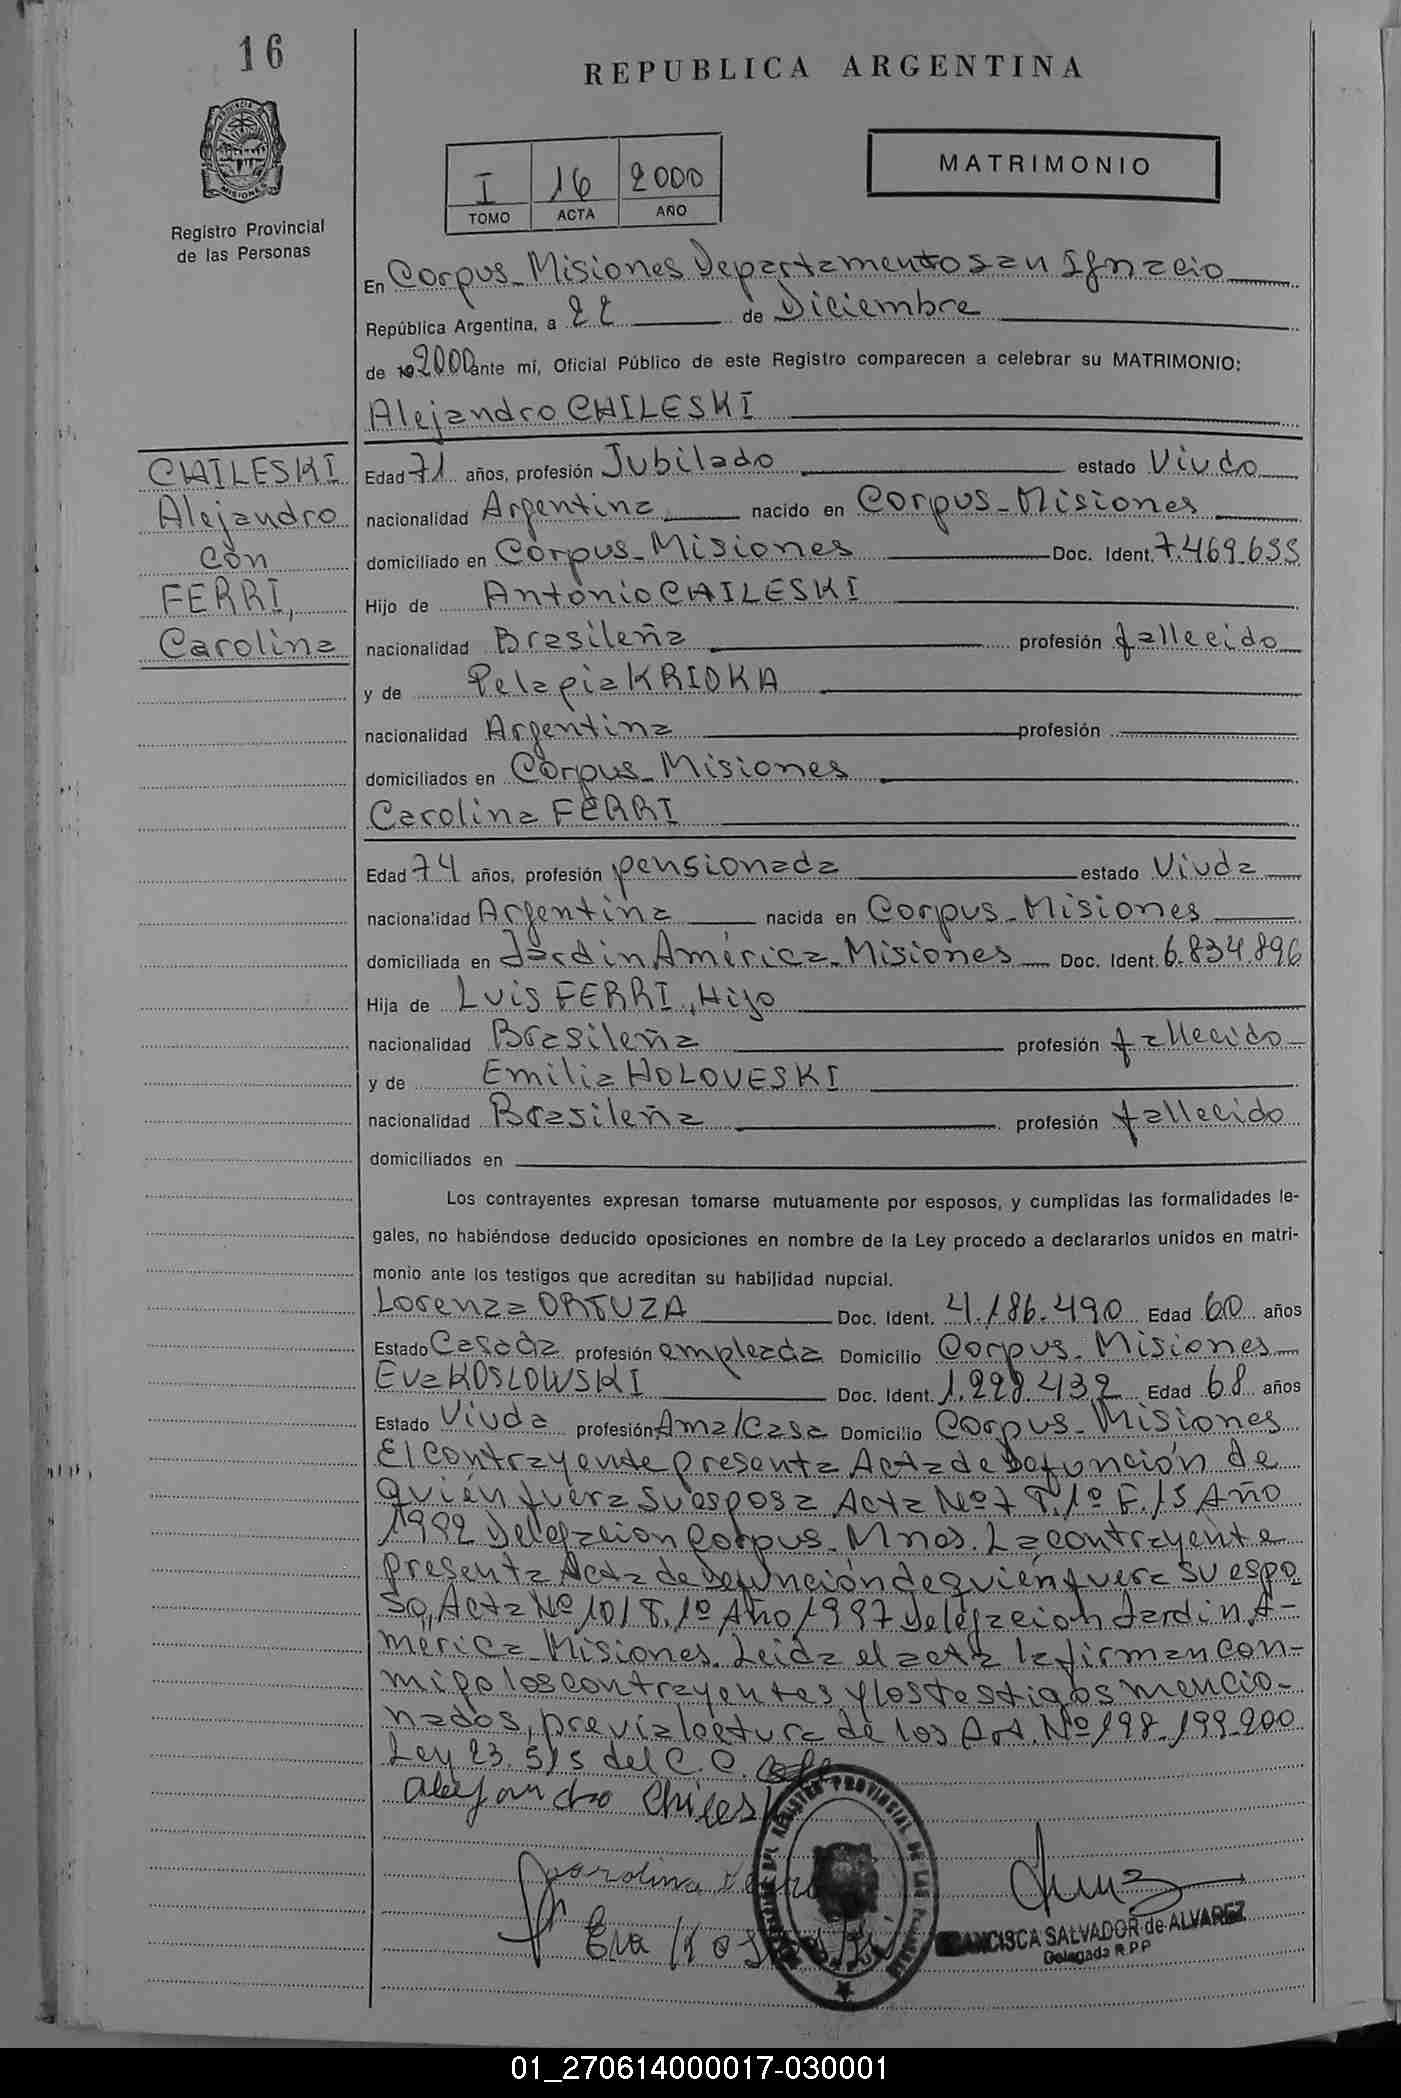 16
REPUBLICA ARGENTINA
PROVINCIA DE
MISIONES
Registro Provincial
de las Personas
I 16 2000
TOMO ACTA AÑO
MATRIMONIO
En Corpus-Misiones Departamento San Ignacio
República Argentina, a 22 de Diciembre
de 2000 ante mí, Oficial Público de este Registro comparecen a celebrar su MATRIMONIO:
Alejandro CHILESKI
CHILESKI
Alejandro
con
FERRI,
Carolina
Edad 71 años, profesión Jubilado estado Viudo
nacionalidad Argentina nacido en Corpus-Misiones
domiciliado en Corpus-Misiones Doc. Ident. 7.469.655
Hijo de Antonio CHILESKI
nacionalidad Brasileña profesión fallecido
y de Pelagia KRIOKA
nacionalidad Argentina profesión
domiciliados en Corpus-Misiones
Carolina FERRI
Edad 74 años, profesión pensionada estado Viuda
nacionalidad Argentina nacida en Corpus-Misiones
domiciliada en Jardin América-Misiones Doc. Ident. 6.834.896
Hija de Luis FERRI, Hijo
nacionalidad Brasileña profesión fallecido
y de Emilia HOLOVESKI
nacionalidad Brasileña profesión fallecido
domiciliados en
Los contrayentes expresan tomarse mutuamente por esposos, y cumplidas las formalidades le-
gales, no habiéndose deducido oposiciones en nombre de la Ley procedo a declararlos unidos en matri-
monio ante los testigos que acreditan su habilidad nupcial.
Lorenza ORTUZA Doc. Ident. 4.186.490 Edad 60 años
Estado Casada profesión empleada Domicilio Corpus-Misiones
Eva KOSLOWSKI Doc. Ident. 1.228.432 Edad 68 años
Estado Viuda profesión Ama/Casa Domicilio Corpus-Misiones
El contrayente presenta Acta de Defunción de
quién fuera su esposa Acta Nº 7 T. 1º F. 15 Año
1992 Delegacion Corpus-Mnes. La contrayente
presenta Acta de Defunción de quién fuera su espo
so, Acta Nº 101 T. 1º Año 1997 Delegacion Jardin A-
mérica-Misiones. Leida el acta la firman con-
migo los contrayentes y los testigos mencio-
nados, previa lectura de los Art. Nº 198-199-200
Ley 23.515 del C.C.
Alejandro Chileski
Carolina
Eva Koslowski
REGISTRO PROVINCIAL DE LAS PERSONAS
FRANCISCA SALVADOR de ALVAREZ
Delegada R.P.P
01_270614000017-030001